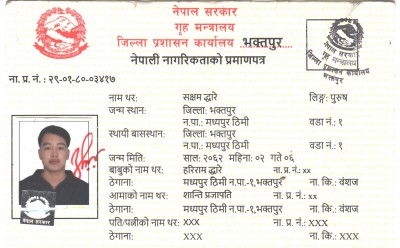 नेपाल सरकार
गृह मन्त्रालय
जिल्ला प्रशासन कार्यालय भक्तपुर
नेपाली नागरिकताको प्रमाणपत्र
ना. प्र. नं. : २९-०१-८०-०३४१७
नाम थर: सक्षम द्धारे लिङ्ग: पुरुष
जन्म स्थान: जिल्ला: भक्तपुर
न.पा.: मध्यपुर ठिमी वडा नं.: १
स्थायी बासस्थान: जिल्ला: भक्तपुर
न.पा.: मध्यपुर ठिमी वडा नं.: १
जन्म मिति: साल: २०६२ महिना: ०२ गते ०६
बाबुको नाम थर: हरिराम द्धारे ना. प्र. नं.: xx
ठेगाना: मध्यपुर ठिमी न.पा.-१,भक्तपुर ना. कि.: वंशज
आमाको नाम थर: शान्ति प्रजापति ना. प्र. नं.: xx
ठेगाना: मध्यपुर ठिमी न.पा.-१,भक्तपुर ना. कि.: वंशज
पति/पत्नीको नाम थर: XXX ना. प्र. नं.: XXX
ठेगाना: XXX ना. कि.: XXX